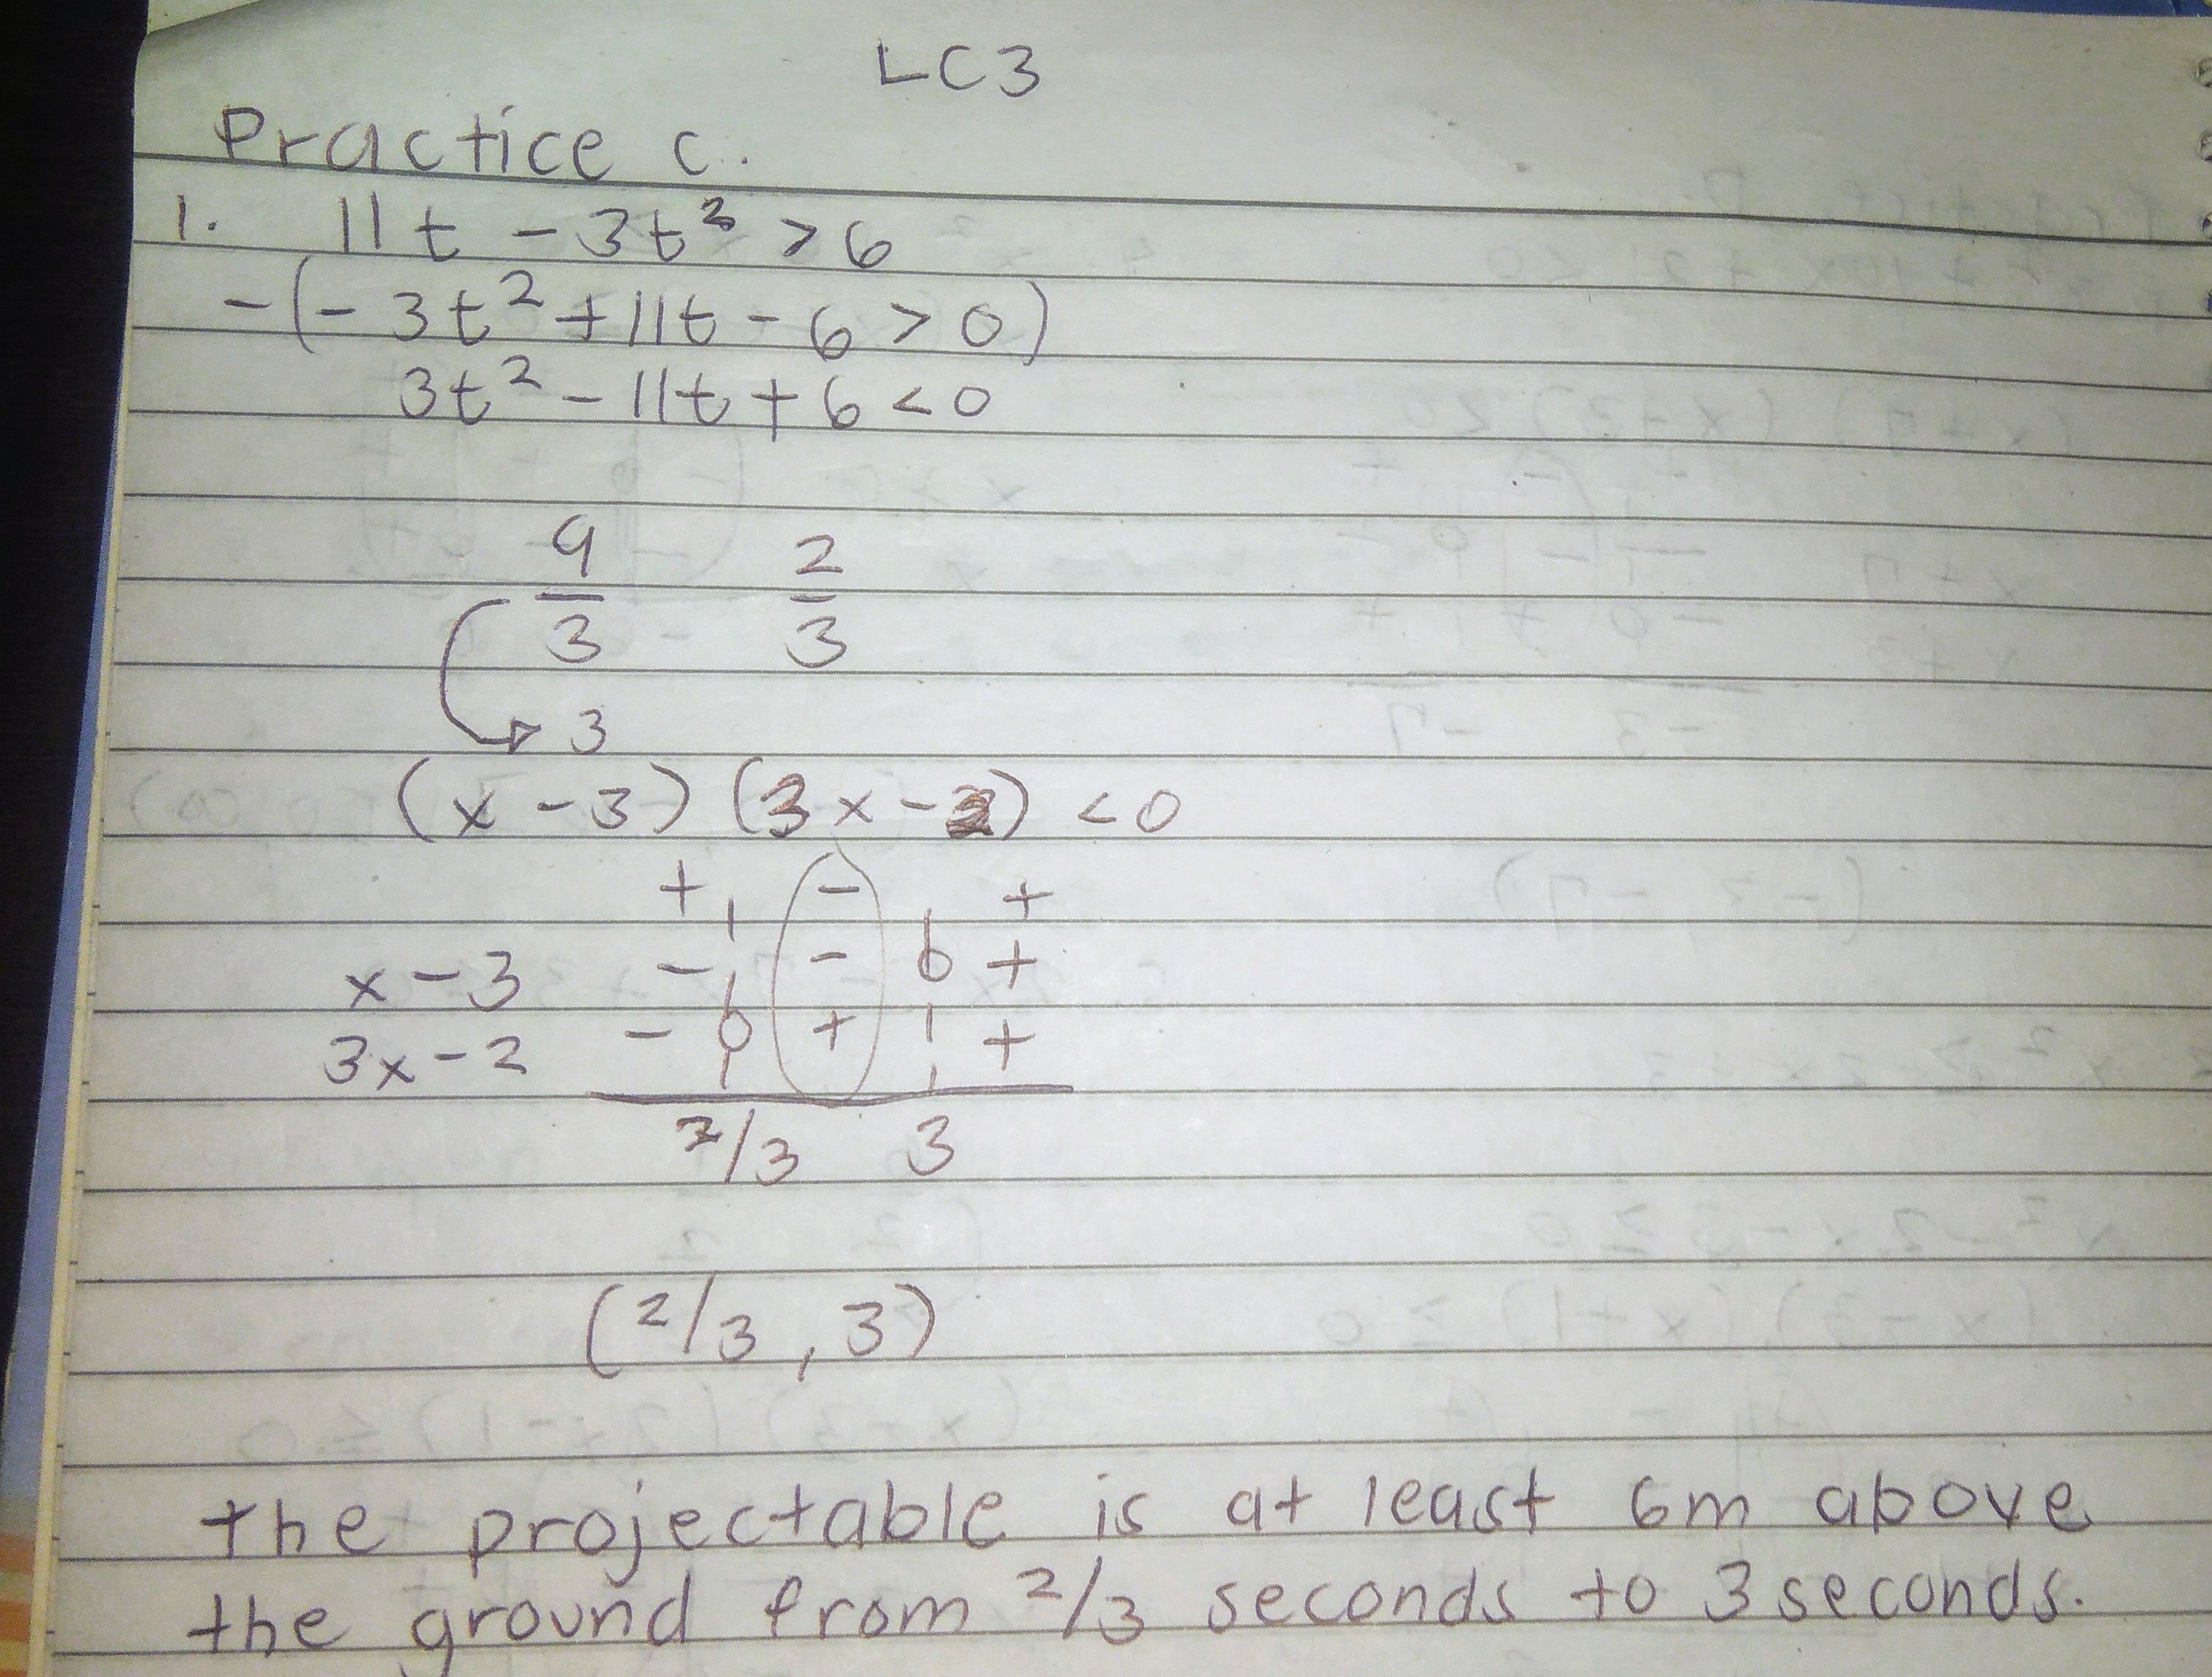 LC3
Practice c.
1. 11t - 3t² > 6
-(-3t² + 11t - 6 > 0)
3t² - 11t + 6 < 0
9/3 2/3
3
(x - 3) (3x - 2) < 0
+ - +
x - 3 - - 0 +
3x - 2 - 0 + +
2/3 3
(2/3, 3)
the projectable is at least 6m above
the ground from 2/3 seconds to 3 seconds.